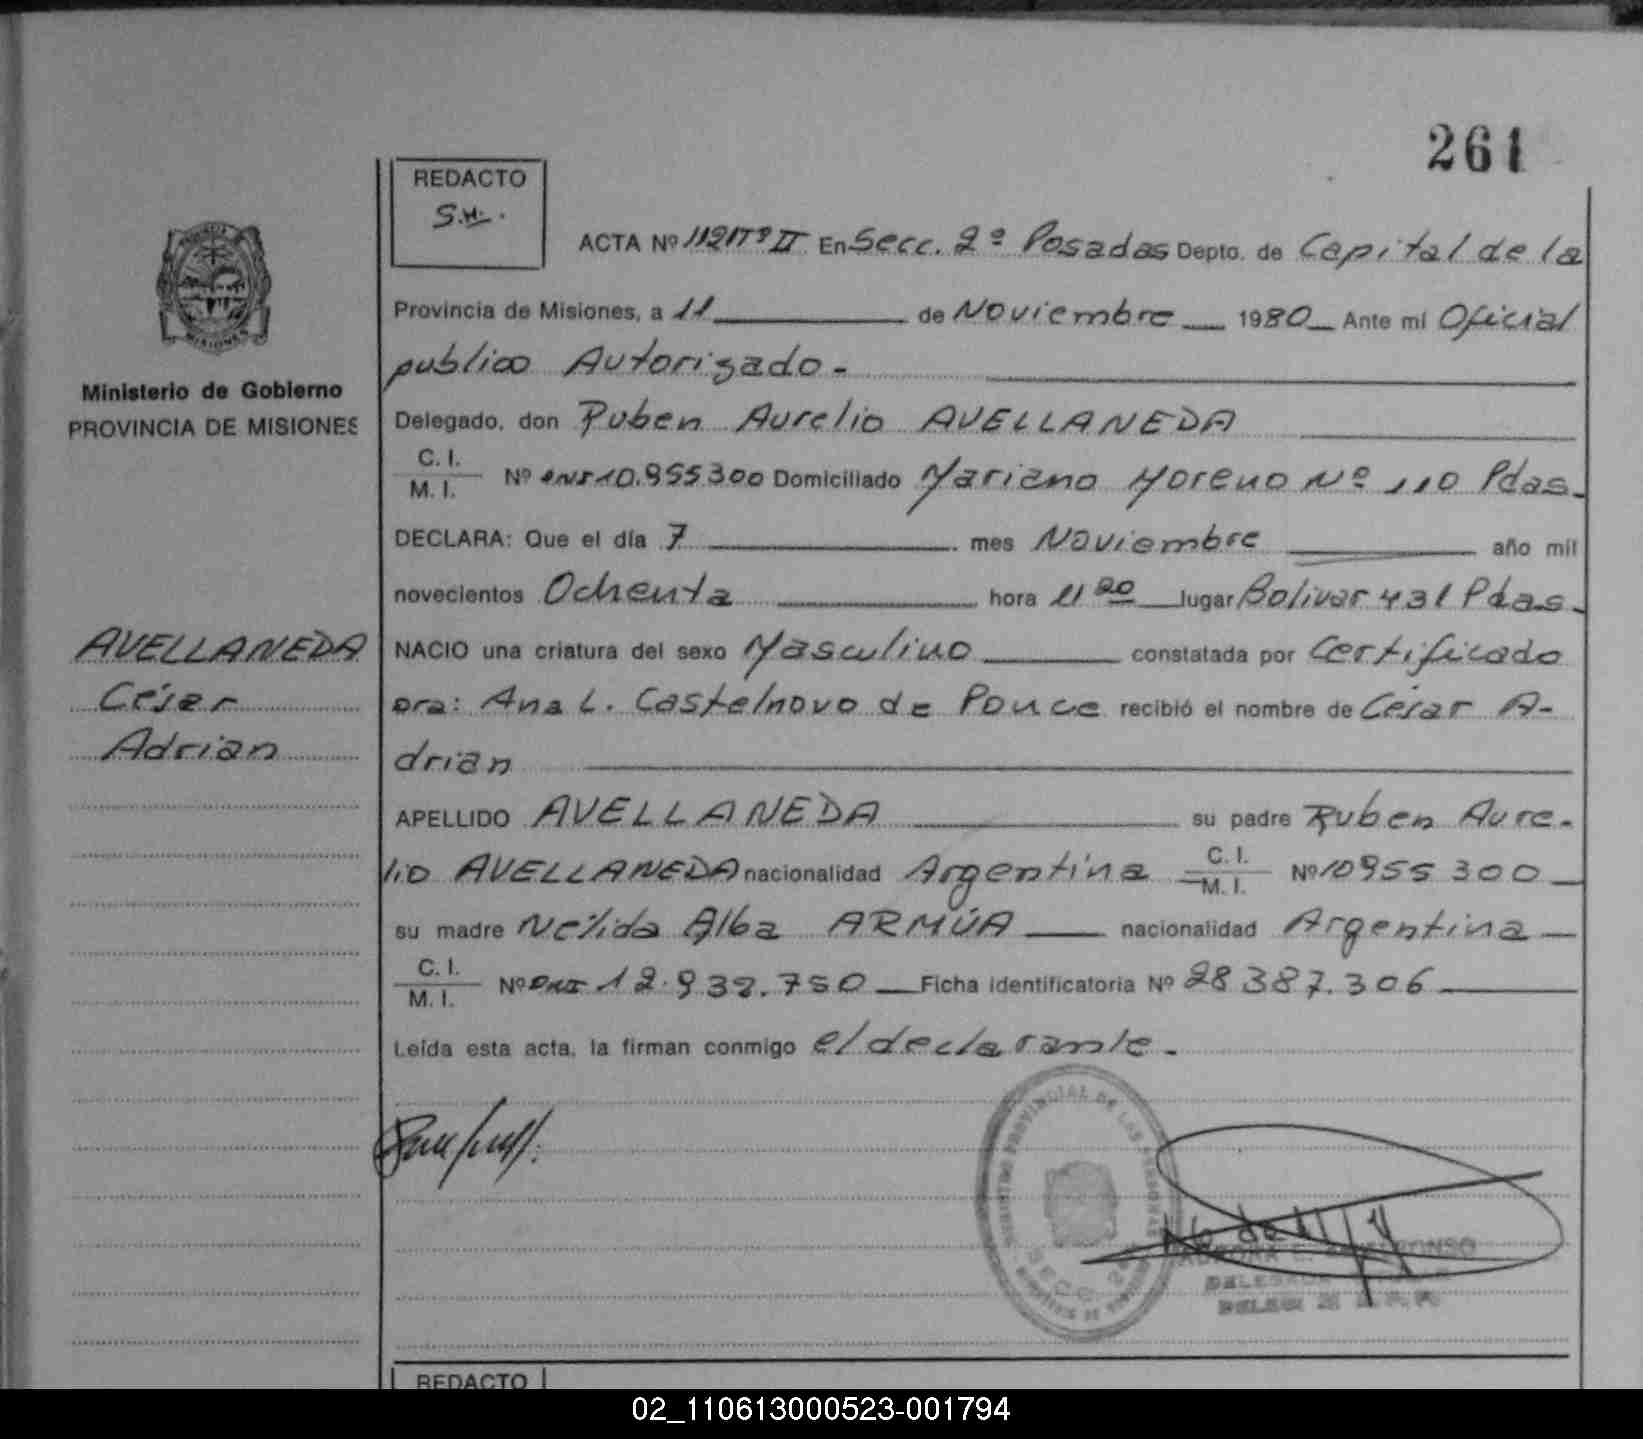 261
REDACTO
S.H.
ACTA Nº 1121 Tº II En Secc. 2º Posadas Depto. de Capital de la
Provincia de Misiones, a 11 de Noviembre 1980 Ante mi Oficial
publico Autorizado.-
Ministerio de Gobierno
PROVINCIA DE MISIONES
Delegado, don Ruben Aurelio AVELLANEDA
C. I.
M. I. Nº DNI 10.955.300 Domiciliado Mariano Moreno Nº 110 Pdas.
DECLARA: Que el día 7 mes Noviembre año mil
novecientos Ochenta hora 11 20 lugar Bolivar 431 Pdas.
NACIO una criatura del sexo Masculino constatada por Certificado
Dra: Ana L. Castelnovo de Ponce recibió el nombre de César A-
drian
AVELLANEDA
César
Adrian
APELLIDO AVELLANEDA su padre Ruben Aure-
lio AVELLANEDA nacionalidad Argentina C. I.
M. I. Nº 10955300
su madre Nélida Alba ARMÚA nacionalidad Argentina
C. I.
M. I. Nº DNI 12.932.750 Ficha Identificatoria Nº 28387.306
Leída esta acta, la firman conmigo el declarante.
PROVINCIAL DE LAS PERSONAS
SECC. 2
DELEGADA
REDACTO
02_110613000523-001794